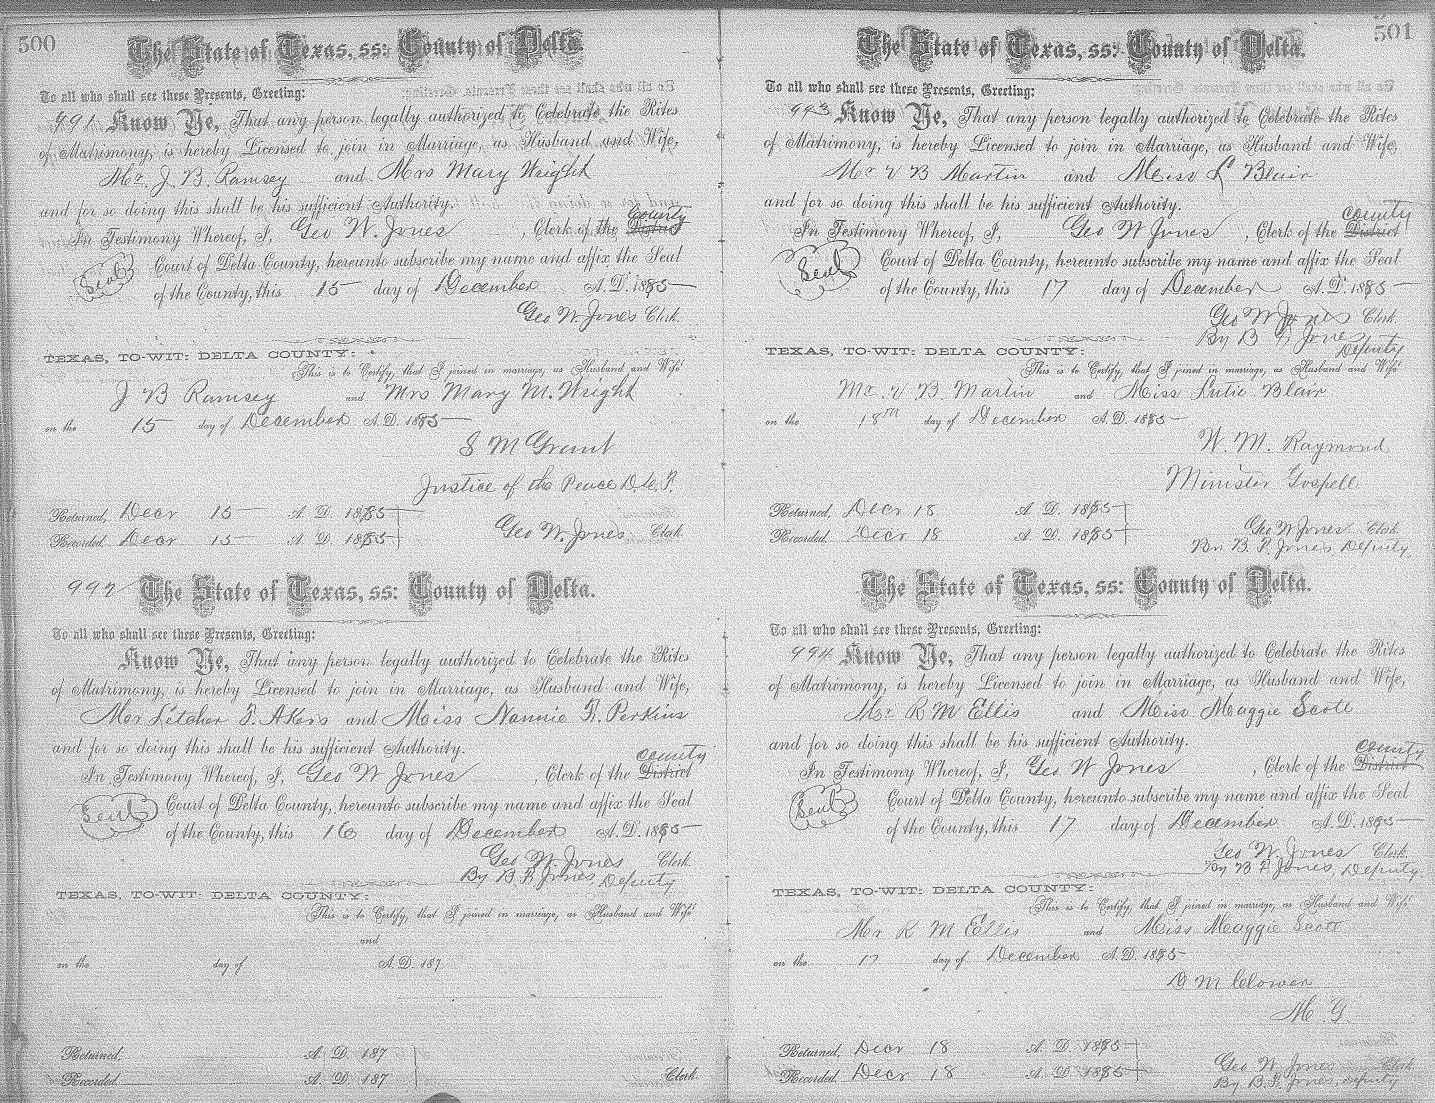 500
The State of Texas, ss: County of Delta.
To all who shall see these Presents, Greeting:
991 Know Ye, That any person legally authorized to Celebrate the Rites
of Matrimony, is hereby Licensed to join in Marriage, as Husband and Wife,
Mr. J. B. Ramsey and Mrs Mary Wright
and for so doing this shall be his sufficient Authority.
In Testimony Whereof, I, Geo W. Jones, Clerk of the District County
Seal Court of Delta County, hereunto subscribe my name and affix the Seal
of the County, this 15 day of December A. D. 1885
Geo W. Jones Clerk.
TEXAS, TO-WIT: DELTA COUNTY:
This is to Certify, that I joined in marriage, as Husband and Wife
J B Ramsey and Mrs Mary M. Wright
on the 15 day of December A. D. 1885
S M Grant
Justice of the Peace D. C. T.
Returned, Decr 15 A. D. 1885
Recorded Decr 15 A. D. 1885 Geo W. Jones Clerk.
992 The State of Texas, ss: County of Delta.
To all who shall see these Presents, Greeting:
Know Ye, That any person legally authorized to Celebrate the Rites
of Matrimony, is hereby Licensed to join in Marriage, as Husband and Wife,
Mr Letcher F. Akers and Miss Nannie F. Perkins
and for so doing this shall be his sufficient Authority.
In Testimony Whereof, I, Geo W Jones, Clerk of the District County
Seal Court of Delta County, hereunto subscribe my name and affix the Seal
of the County, this 16 day of December A. D. 1885
Geo W. Jones Clerk.
By B F Jones Deputy
TEXAS, TO-WIT: DELTA COUNTY:
This is to Certify, that I joined in marriage, as Husband and Wife
and
on the day of A. D. 187
Returned, A. D. 187
Recorded A. D. 187 Clerk.
501
The State of Texas, ss: County of Delta.
To all who shall see these Presents, Greeting:
993 Know Ye, That any person legally authorized to Celebrate the Rites
of Matrimony, is hereby Licensed to join in Marriage, as Husband and Wife,
Mr V B Martin and Miss L Blair
and for so doing this shall be his sufficient Authority.
In Testimony Whereof, I, Geo W Jones, Clerk of the District County
Seal Court of Delta County, hereunto subscribe my name and affix the Seal
of the County, this 17 day of December A. D. 1885
Geo W Jones Clerk
By B F Jones Deputy
TEXAS, TO-WIT: DELTA COUNTY:
This is to Certify, that I joined in marriage, as Husband and Wife
Mr V B. Martin and Miss Lutie Blair
on the 18th day of December A. D. 1885
W. M. Raymond
Minister Gospell
Returned, Decr 18 A. D. 1885
Recorded Decr 18 A. D. 1885 Geo W Jones Clerk
By B. F. Jones Deputy
The State of Texas, ss: County of Delta.
To all who shall see these Presents, Greeting:
994 Know Ye, That any person legally authorized to Celebrate the Rites
of Matrimony, is hereby Licensed to join in Marriage, as Husband and Wife,
Mr R M Ellis and Miss Maggie Scott
and for so doing this shall be his sufficient Authority.
In Testimony Whereof, I, Geo W Jones, Clerk of the District County
Seal Court of Delta County, hereunto subscribe my name and affix the Seal
of the County, this 17 day of December A. D. 1885
Geo W. Jones Clerk.
By B F Jones, Deputy
TEXAS, TO-WIT: DELTA COUNTY:
This is to Certify, that I joined in marriage, as Husband and Wife
Mr R M Ellis and Miss Maggie Scott
on the 17 day of December A. D. 1885
D M Clower
M. G.
Returned, Decr 18 A. D. 1885
Recorded Decr 18 A. D. 1885 Geo W Jones Clerk
By B. F. Jones, Deputy